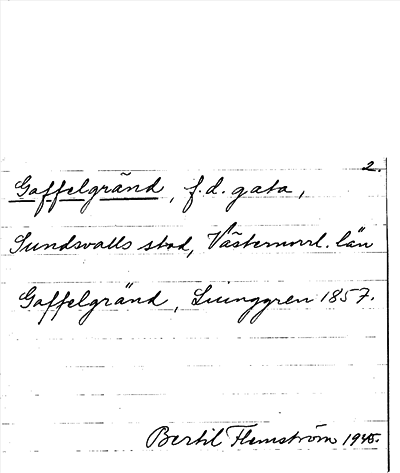 2.
Gaffelgränd, f.d. gata,
Sundsvalls stad, Västernorrl. län
Gaffelgränd, Ljunggren 1857.
Bertil Flemström 1945.